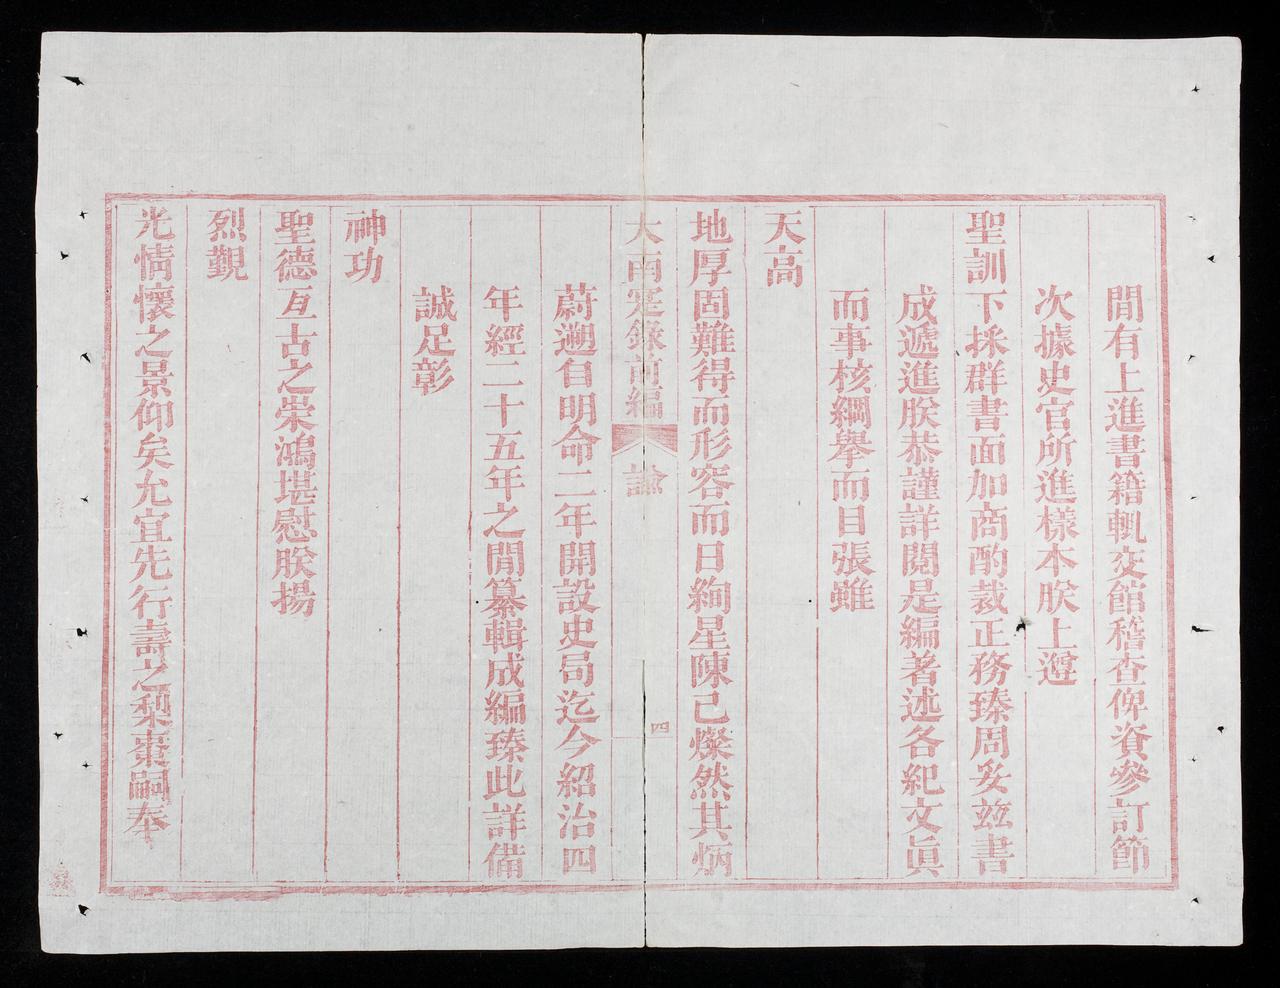 間有上進書籍輒交館稽查俾資參訂節
次據史官所進樣本朕上遵
聖訓下採群書面加商酌裁正務臻周妥茲書
成遞進朕恭謹詳閱是編著述各紀文眞
而事核綱舉而目張雖
天高
地厚固難得而形容而日絢星陳已燦然其炳
大南寔錄前編 諭 四
蔚遡自明命二年開設史局迄今紹治四
年經二十五年之間纂輯成編臻此詳備
誠足彰
神功
聖德亙古之崇鴻堪慰朕揚
烈覲
光情懷之景仰矣允宜先行壽之梨棗嗣奉